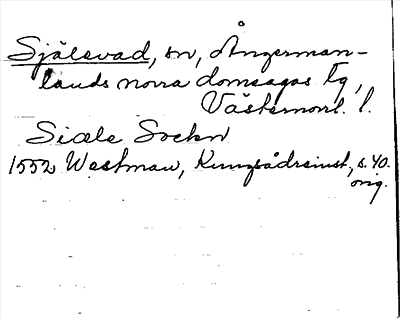 Själevad, sn, Ångerman-
lands norra domsagas tg,
Västernorrl. l.
Siæle Sockn
1552 Westman, Kungsådreinst, s. 40.
orig.